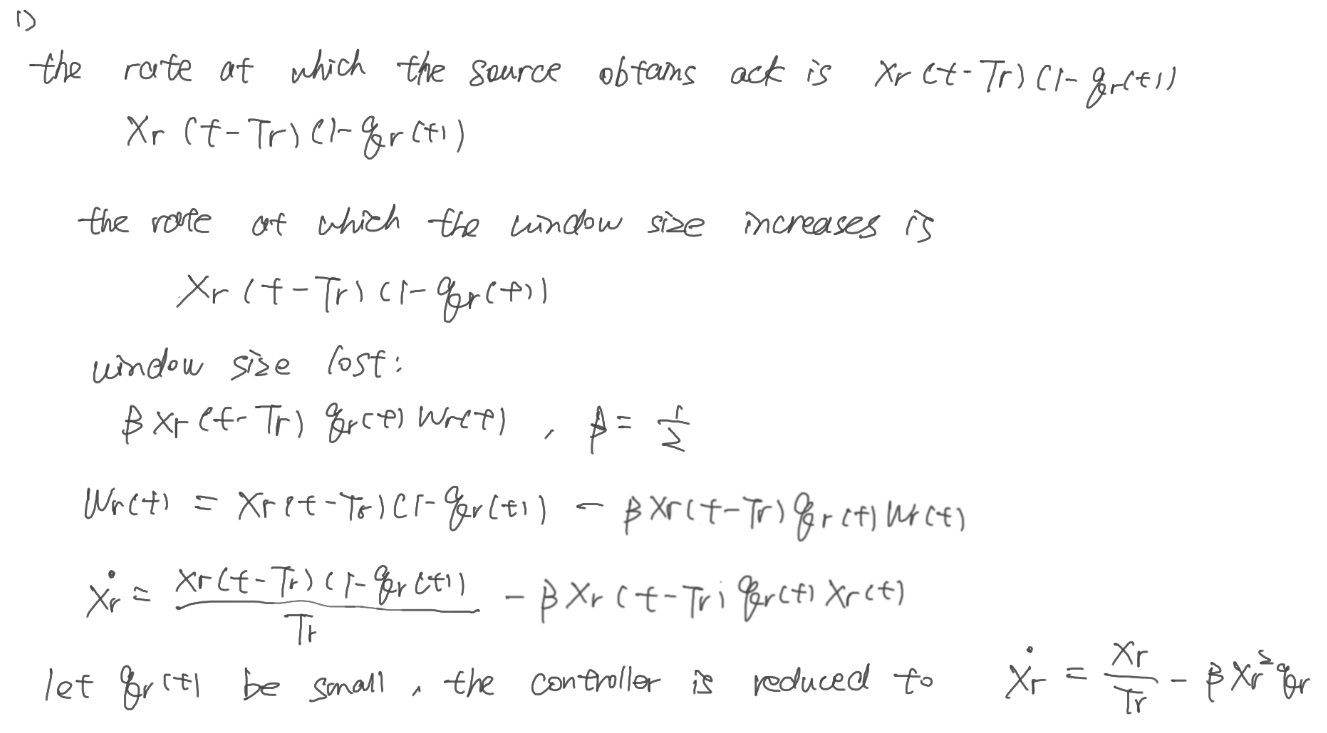 1)
the rate at which the source obtains ack is Xr (t-Tr) (1-qr(t))
Xr (t-Tr) (1-qr(t))
the rate at which the window size increases is
Xr (t-Tr) (1-qr(t))
window size lost:
β Xr (t-Tr) qr(t) Wr(t) , β = 1/2
Wr(t) = Xr (t-Tr) (1-qr(t)) - β Xr (t-Tr) qr(t) Wr(t)
Ẋr = Xr (t-Tr) (1-qr(t)) / Tr - β Xr (t-Tr) qr(t) Xr(t)
let qr(t) be small, the controller is reduced to Ẋr = Xr/Tr - β Xr² qr